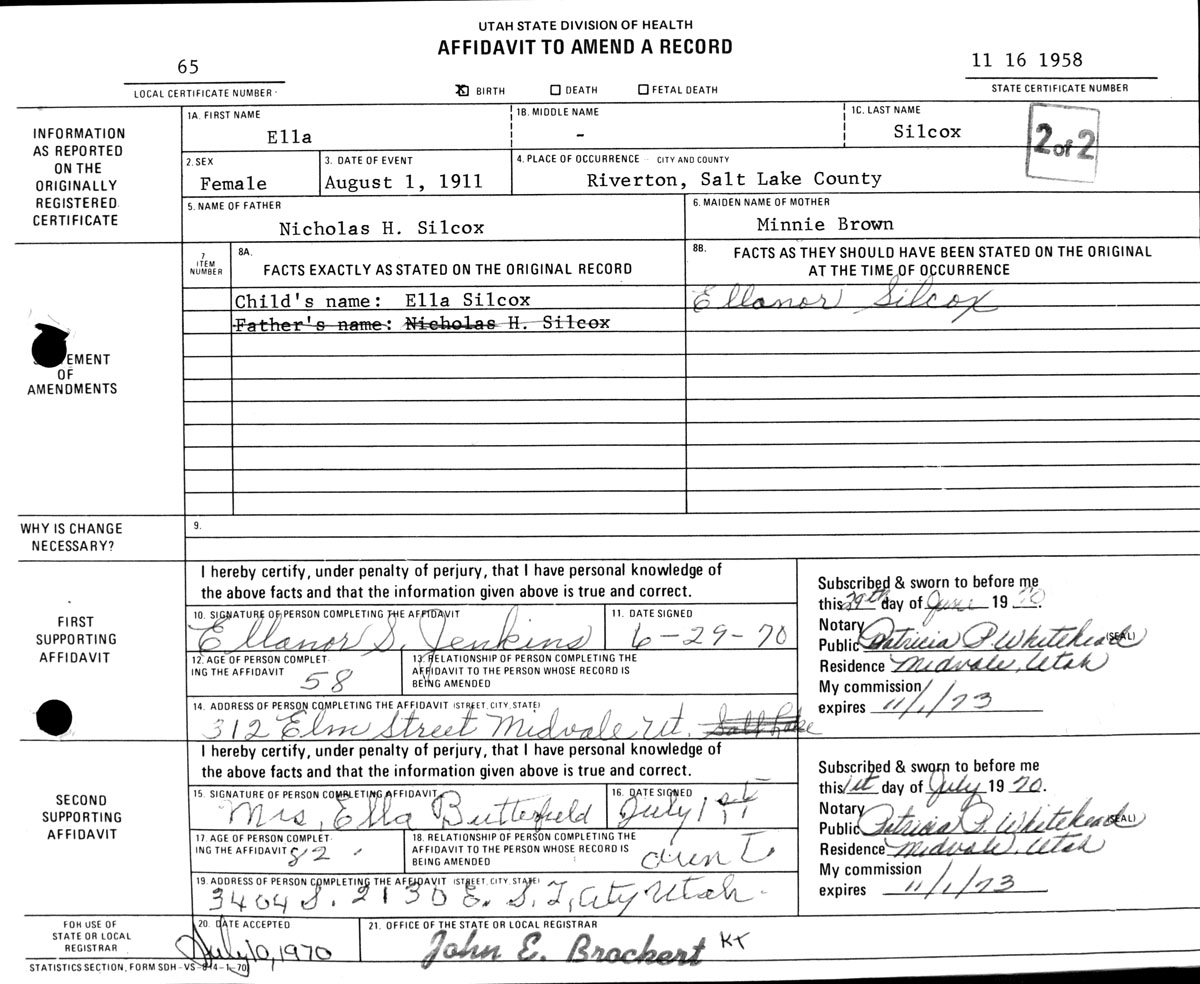 UTAH STATE DIVISION OF HEALTH
AFFIDAVIT TO AMEND A RECORD
65
11 16 1958
LOCAL CERTIFICATE NUMBER
BIRTH DEATH FETAL DEATH
STATE CERTIFICATE NUMBER
INFORMATION
AS REPORTED
ON THE
ORIGINALLY
REGISTERED
CERTIFICATE
1A. FIRST NAME
Ella
1B. MIDDLE NAME
-
1C. LAST NAME
Silcox
2 of 2
2. SEX
Female
3. DATE OF EVENT
August 1, 1911
4. PLACE OF OCCURRENCE - CITY AND COUNTY
Riverton, Salt Lake County
5. NAME OF FATHER
Nicholas H. Silcox
6. MAIDEN NAME OF MOTHER
Minnie Brown
7
ITEM
NUMBER
8A.
FACTS EXACTLY AS STATED ON THE ORIGINAL RECORD
8B. FACTS AS THEY SHOULD HAVE BEEN STATED ON THE ORIGINAL
AT THE TIME OF OCCURRENCE
Child's name: Ella Silcox
Ellanor Silcox
Father's name: Nicholas H. Silcox
EMENT
OF
AMENDMENTS
WHY IS CHANGE
NECESSARY?
9.
FIRST
SUPPORTING
AFFIDAVIT
I hereby certify, under penalty of perjury, that I have personal knowledge of
the above facts and that the information given above is true and correct.
10. SIGNATURE OF PERSON COMPLETING THE AFFIDAVIT
Ellanor S. Jenkins
11. DATE SIGNED
6-29-70
12. AGE OF PERSON COMPLET-
ING THE AFFIDAVIT 58
13. RELATIONSHIP OF PERSON COMPLETING THE
AFFIDAVIT TO THE PERSON WHOSE RECORD IS
BEING AMENDED
14. ADDRESS OF PERSON COMPLETING THE AFFIDAVIT (STREET, CITY, STATE)
312 Elm Street Midvale Ut. Salt Lake
Subscribed & sworn to before me
this 29th day of June 1970.
Notary
Public Patricia P. Whitehead (SEAL)
Residence Midvale, Utah
My commission
expires 11/1/73
SECOND
SUPPORTING
AFFIDAVIT
I hereby certify, under penalty of perjury, that I have personal knowledge of
the above facts and that the information given above is true and correct.
15. SIGNATURE OF PERSON COMPLETING AFFIDAVIT
Mrs. Ella Butterfield
16. DATE SIGNED
July 1st
17. AGE OF PERSON COMPLET-
ING THE AFFIDAVIT 82
18. RELATIONSHIP OF PERSON COMPLETING THE
AFFIDAVIT TO THE PERSON WHOSE RECORD IS
BEING AMENDED
aunt
19. ADDRESS OF PERSON COMPLETING THE AFFIDAVIT (STREET, CITY, STATE)
3404 S. 2130 E. S. L, City Utah
Subscribed & sworn to before me
this 1st day of July 1970.
Notary
Public Patricia P. Whitehead (SEAL)
Residence Midvale, Utah
My commission
expires 11/1/73
FOR USE OF
STATE OR LOCAL
REGISTRAR
20. DATE ACCEPTED
July 10, 1970
21. OFFICE OF THE STATE OR LOCAL REGISTRAR
John E. Brockert KT
STATISTICS SECTION, FORM SDH-VS-